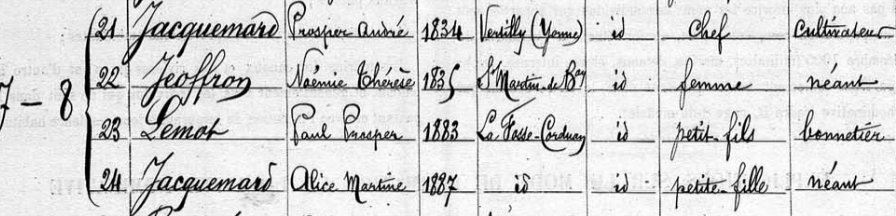 21 Jacquemard Prosper André 1834 Vertilly (Yonne) id chef cultivateur
22 Jeoffron Noémie Thérèse 1835 St Martin-de-Boy id femme néant
7 - 8 23 Lemot Paul Prosper 1883 La Fosse-Corduan id petit-fils bonnetier
24 Jacquemard Alice Martine 1887 id id petite-fille néant